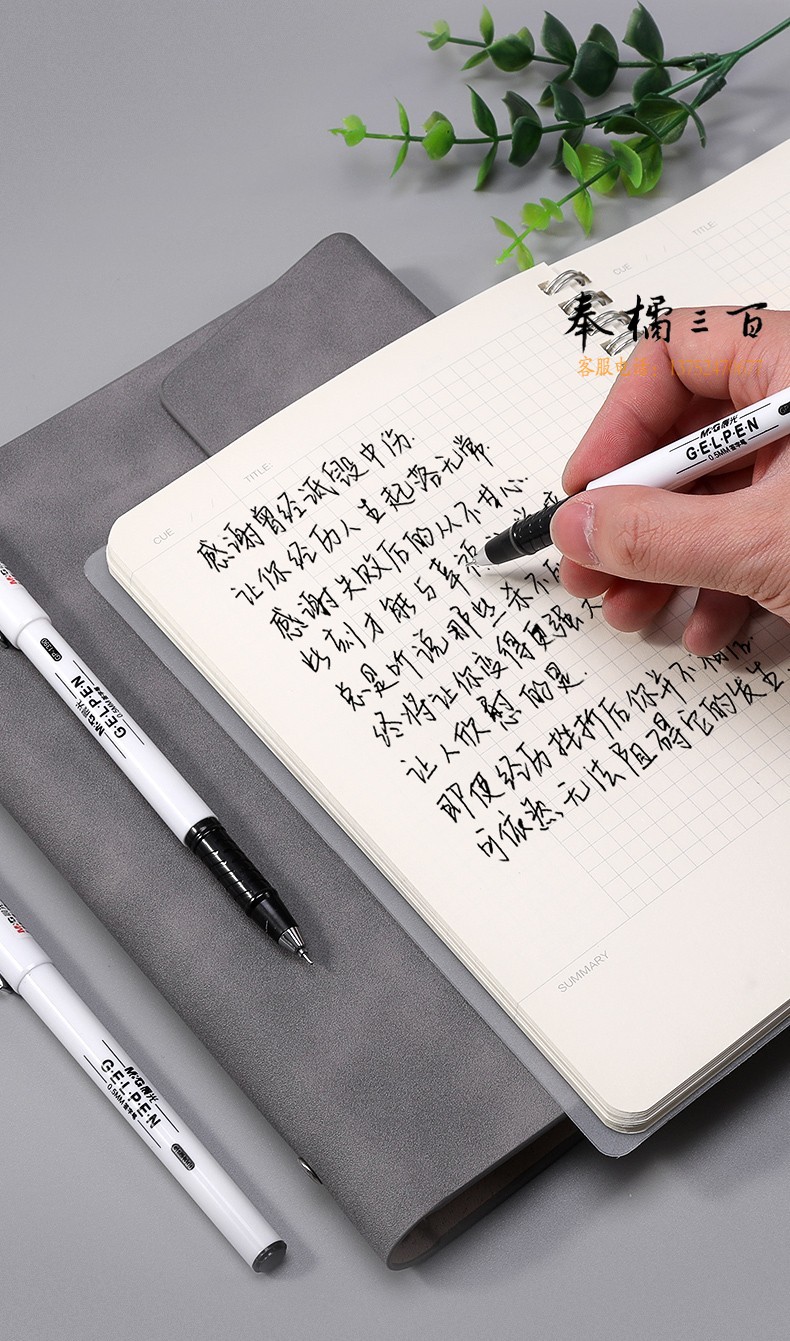 奉橘三百
客服电话:
CUE
TITLE:
CUE
TITLE:
感谢曾经诋毁中伤
让你经历人生起落无常
感谢失败后的从不甘心
此刻才能与幸
总是听说那些杀不
终将让你变得更强大
让人欣慰的是
即便经历挫折后你并不
可依然无法阻碍它的发生
SUMMARY
M&G晨光
G·E·L·P·E·N
0.5MM 签字笔
M&G晨光
G·E·L·P·E·N
0.5MM 签字笔
M&G晨光
G·E·L·P·E·N
0.5MM 签字笔